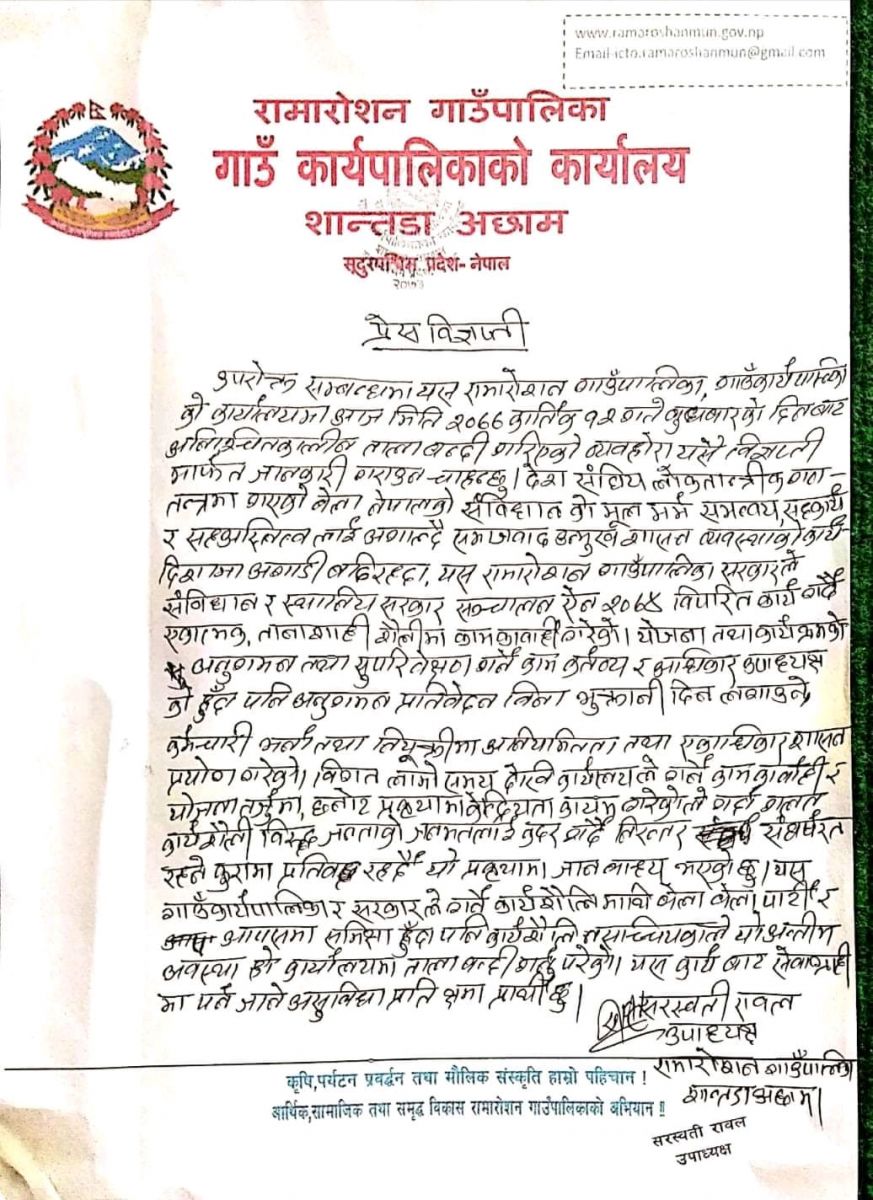 www.ramaroshanmun.gov.np
Email-icto.ramaroshanmun@gmail.com
रामारोशन गाउँपालिका
गाउँ कार्यपालिकाको कार्यालय
शान्तडा अछाम
सुदुरपश्चिम प्रदेश- नेपाल
२०७३
प्रेस विज्ञप्ती
उपरोक्त सम्बन्धमा यस रामारोशन गाउँपालिका, गाउँकार्यपालिका
को कार्यालयमा आज मिति २०७७ कार्तिक १२ गते बुधबारका दिन बाट
अनिश्चितकालीन ताला बन्दी गरिएको व्यवहोरा यसै विज्ञप्ती
मार्फत जानकारी गराउन चाहन्छु । देश संघिय लोकतान्त्रीक गण-
तन्त्रमा गएको बेला नेपालको संविधान को मूल मर्म समन्वय, सहकार्य
र सहअस्तित्व लाई अंगाल्दै समाजवाद उन्मुख शासन व्यवस्थाको कार्य-
दिशामा अगाडी बढिरहदा, यस रामारोशन गाउँपालिका सरकारले
संविधान र स्थानिय सरकार सञ्चालन ऐन २०७४ विपरित कार्य गर्दै
एकात्मक, तानाशाही शैलीमा कामकारवाही गरेको । योजना तथा कार्यक्रमको
अनुगमन तथा सुपरिवेक्षण गर्ने काम कर्तव्य र अधिकार उपाध्यक्ष
को हुँदा पनि अनुगमन प्रतिवेदन बिना भुक्तानी दिन लगाउने,
कर्मचारी भर्ना तथा नियूक्तीमा अनियामितता तथा एकाधिकार शासन
प्रयोग गरेको । विगत लामो समय देखि कार्यालयले गर्ने काम कार्वाही र
योजना तर्जुमा, छनोट प्रकृयामा केन्द्रियता कायम गरेकोले गर्दा गलत
कार्यशैली विरुद्ध जनताको जनमतलाई कदर गर्दै निरन्तर संघर्षरत
रहने कुरामा प्रतिवद्ध रहदै यो प्रकृयामा जान बाध्य भएको छु । यस
गाउँकार्यपालिका र सरकारले गर्ने कार्यशैलि माथि बेला बेला पार्टी र
आपसमा समिक्षा हुँदा पनि कार्यशैली नसच्चिएकाले यो अन्तीम
अवस्था को कार्यालयमा ताला बन्दी गर्नु परेको । यस कार्य बाट सेवाग्राही
मा पर्न जाने असुविधा प्रति क्षमा प्रार्थी छु ।
सरस्वती रावल
उपाध्यक्ष
रामारोशन गाउँपालिका
शान्तडा अछाम ।
कृषि,पर्यटन प्रवर्द्धन तथा मौलिक संस्कृति हाम्रो पहिचान !
आर्थिक,सामाजिक तथा समृद्ध विकास रामारोशन गाउँपालिकाको अभियान !!
सरस्वती रावल
उपाध्यक्ष